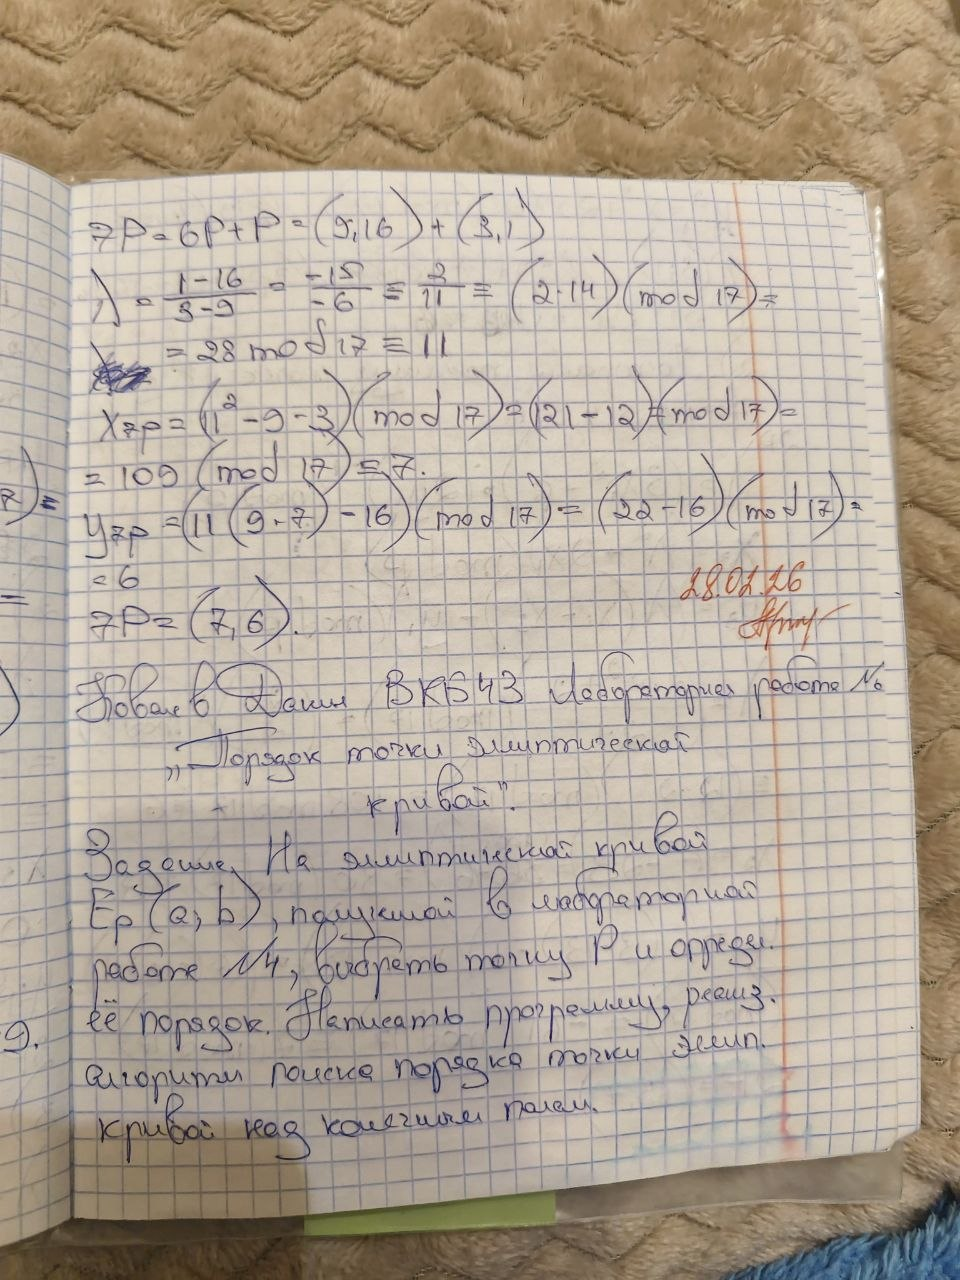 7P = 6P + P = (9,16) + (3,1)
λ = (1-16)/(3-9) = (-15)/(-6) ≡ 2/11 ≡ (2·14)(mod 17) =
= 28 mod 17 ≡ 11
X7P = (11² - 9 - 3)(mod 17) = (121 - 12)(mod 17) =
= 109 (mod 17) ≡ 7.
y7P = (11(9-7) - 16)(mod 17) = (22 - 16)(mod 17) =
= 6
28.02.26
7P = (7,6).
ВКБ43 Лабораторная работа №
„Порядок точки элиптической
кривой".
Задание. На элиптической кривой
Ep(a,b), полученной в лабораторной
работе №4, выбрать точку P и определ.
её порядок. Написать программу, реализ.
алгоритм поиска порядка точки элип.
кривой над конечным полем.
7) =
=
)
9.